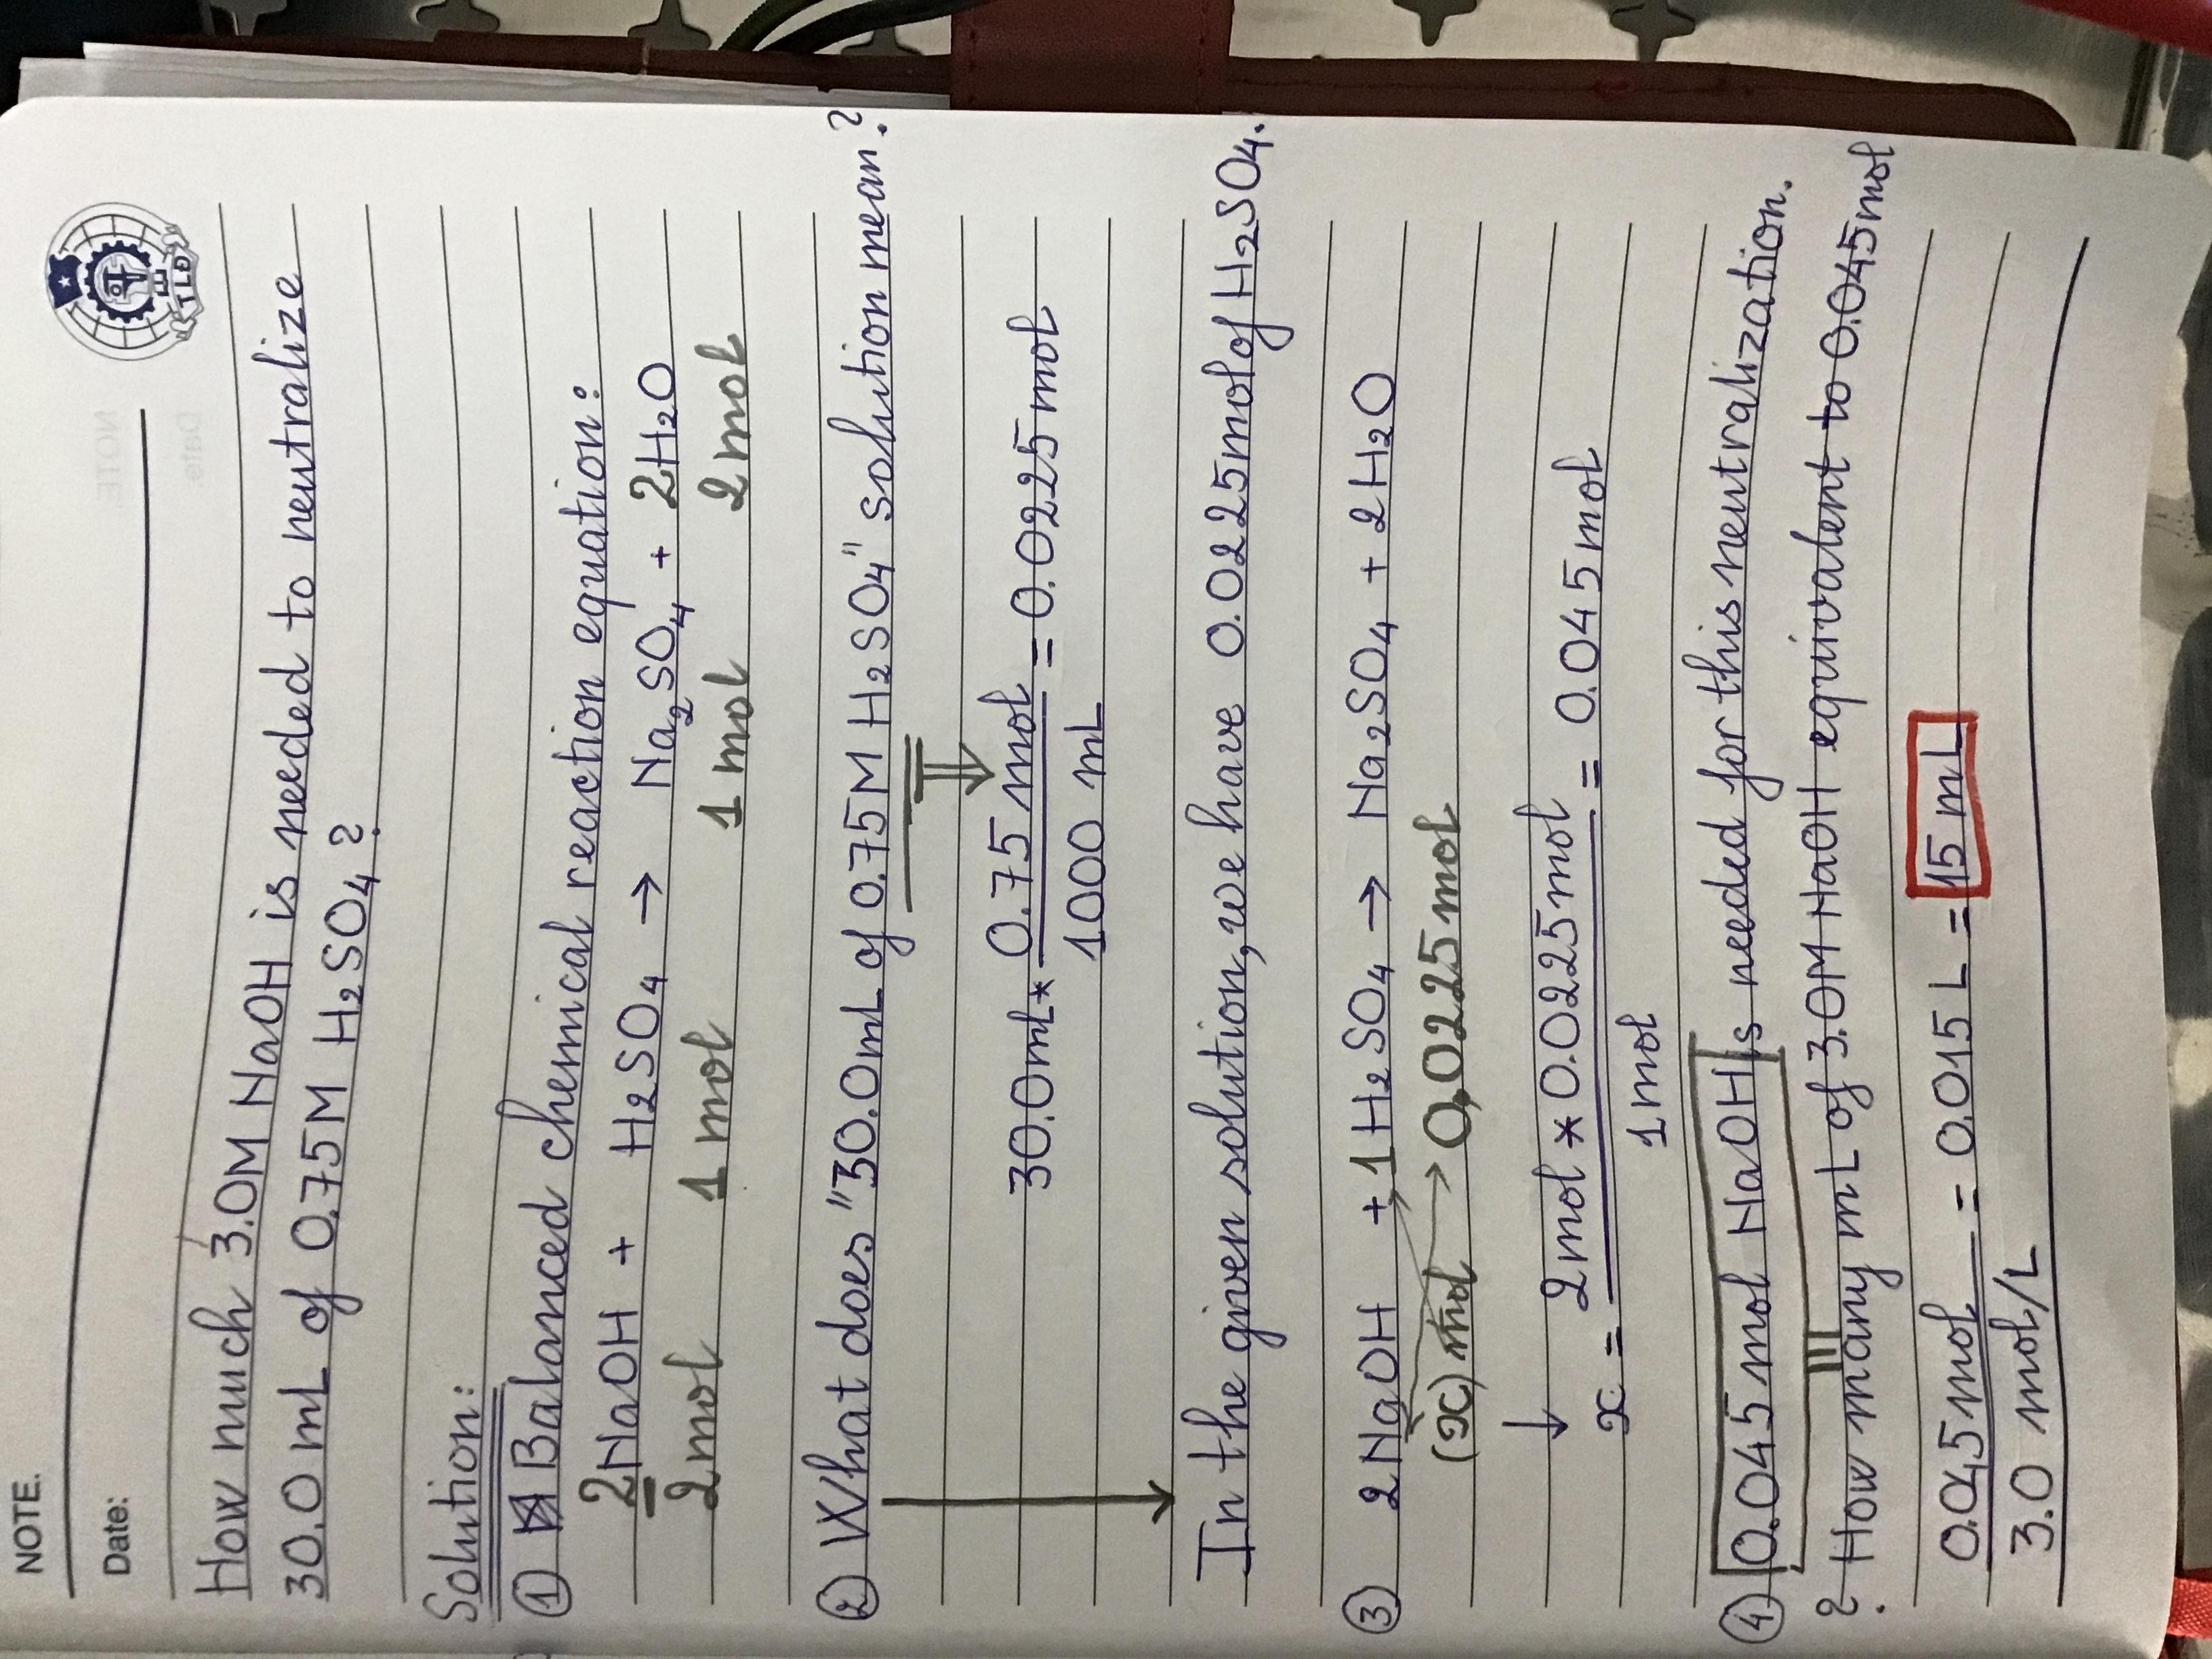 NOTE.
Date:
How much 3.0M NaOH is needed to neutralize
30.0 mL of 0.75M H₂SO₄?
Solution:
① Balanced chemical reaction equation:
2NaOH + H₂SO₄ → Na₂SO₄ + 2H₂O
2mol 1mol 1mol 2mol
② What does "30.0mL of 0.75M H₂SO₄" solution mean?
⇓
30.0mL * 0.75 mol = 0.0225 mol
1000 mL
In the given solution, we have 0.0225mol of H₂SO₄.
③ 2NaOH + 1H₂SO₄ → Na₂SO₄ + 2H₂O
(x) mol → 0,0225mol
↓
x = 2mol * 0.0225mol = 0.045mol
1mol
④ 0.045mol NaOH is needed for this neutralization.
? How many mL of 3.0M NaOH equivalent to 0.045mol
0.045mol = 0.015 L = 15 mL
3.0 mol/L